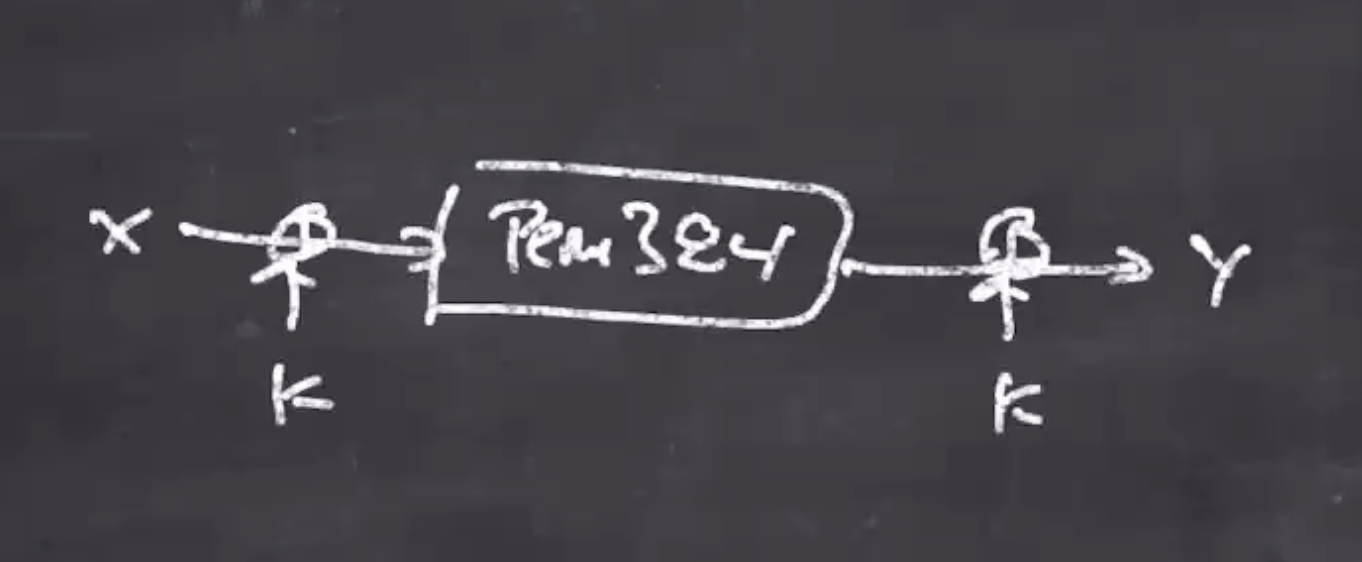 X ⊕ Perm384 ⊕ Y
K K